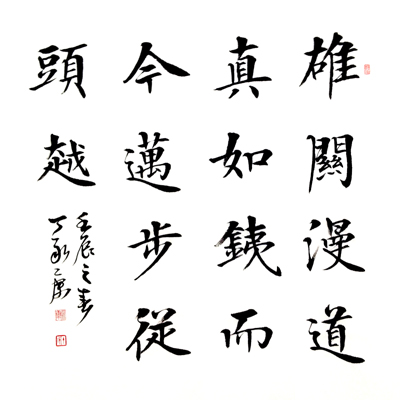 雄關漫道
真如銕而
今邁步從
頭越
壬辰之春
丁